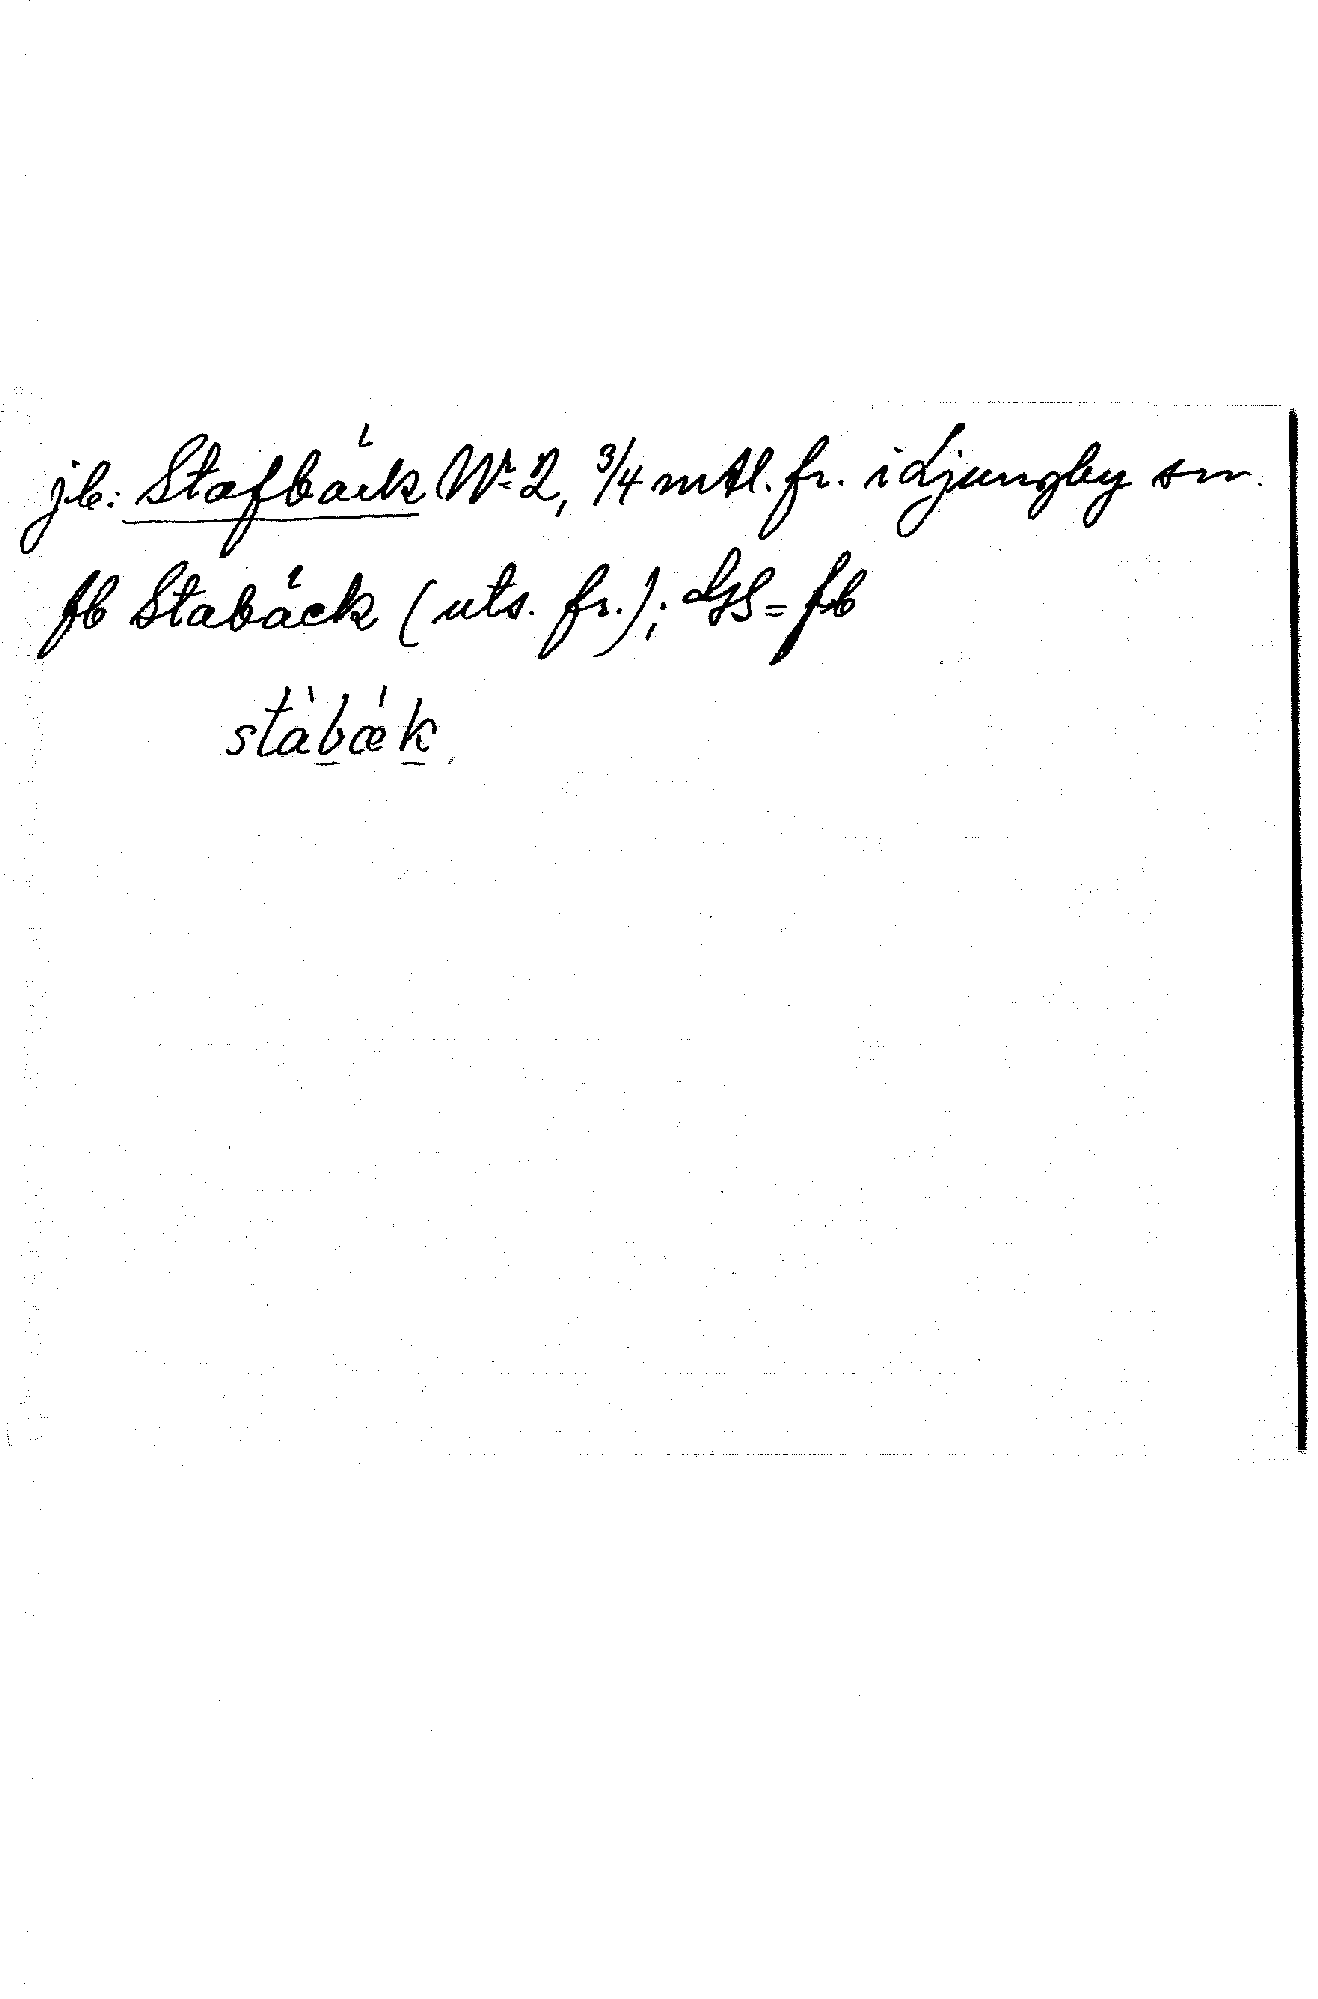 jb: Stafbäck Nr 2, 3/4 mtl. fr. i Ljungby sn.
fb Stabäck (uts. fr.); GS = fb
stàbæ̀k